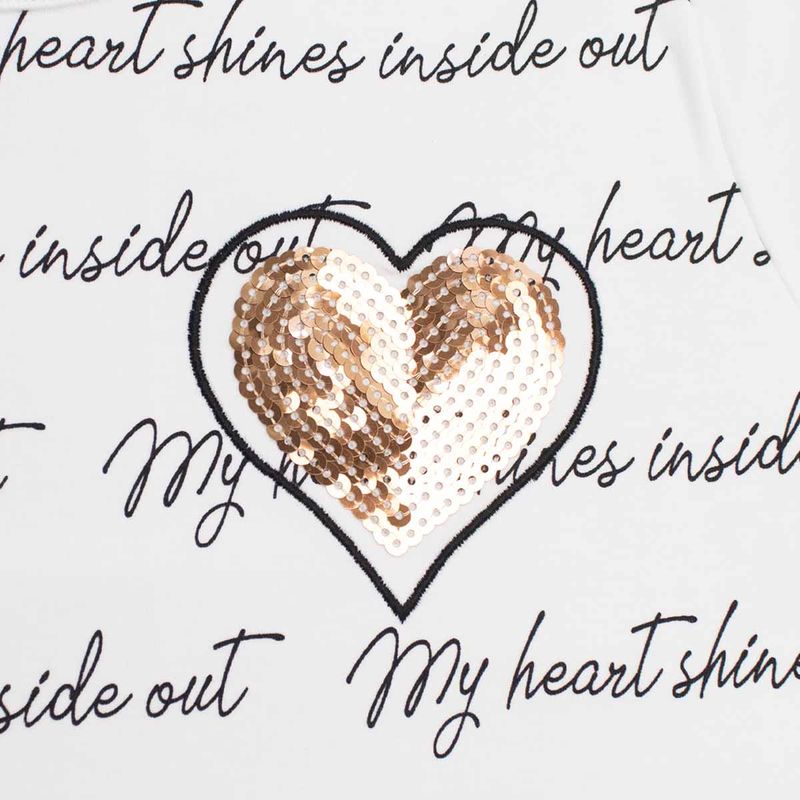 heart shines inside out
inside out My heart
My shines inside
side out My heart shine